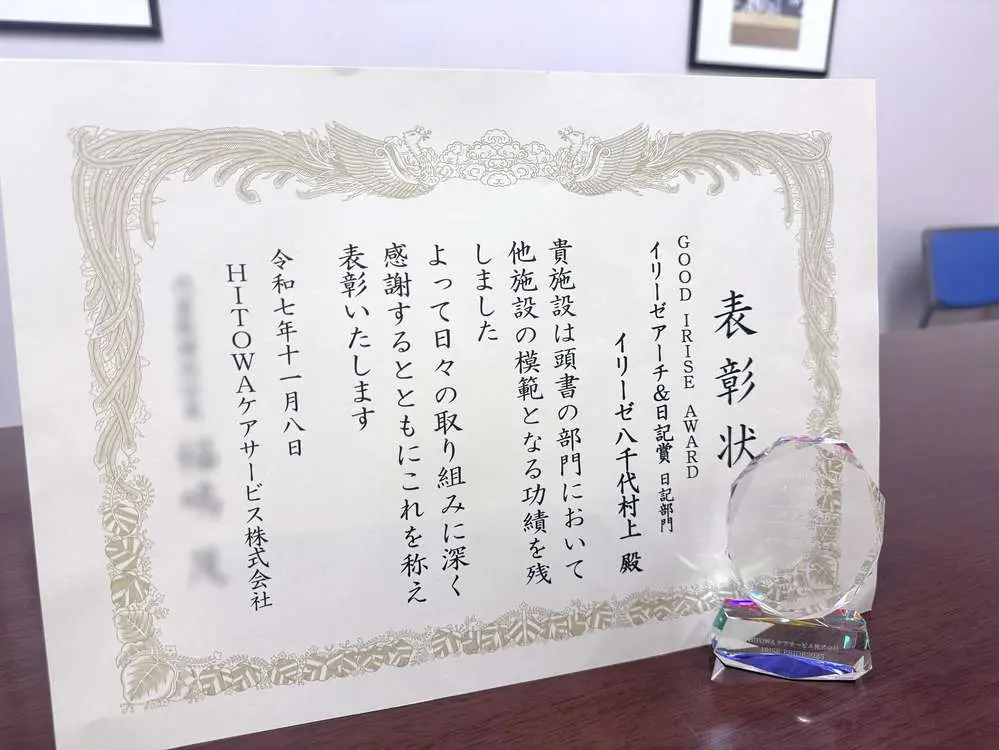 表彰状
GOOD IRISE AWARD
イリーゼアーチ&日記賞 日記部門
イリーゼ八千代村上 殿
貴施設は頭書の部門において
他施設の模範となる功績を残
しました
よって日々の取り組みに深く
感謝するとともにこれを称え
表彰いたします
令和七年十一月八日
HITOWAケアサービス株式会社
HITOWAケアサービス株式会社
IRISE PRIDE2025